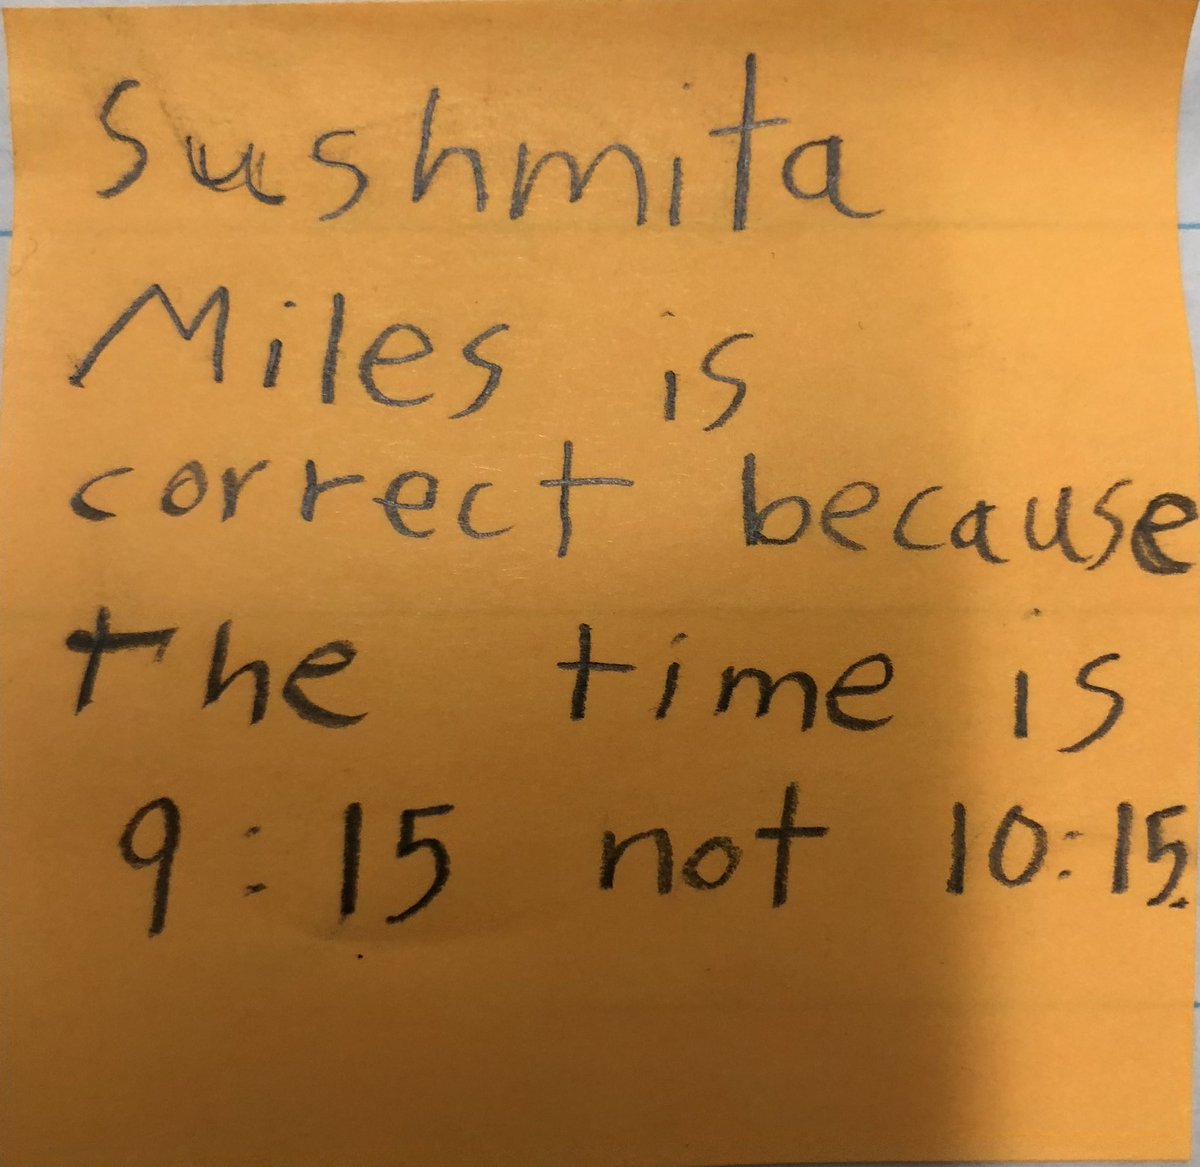 Sushmita
Miles is
correct because
the time is
9:15 not 10:15.